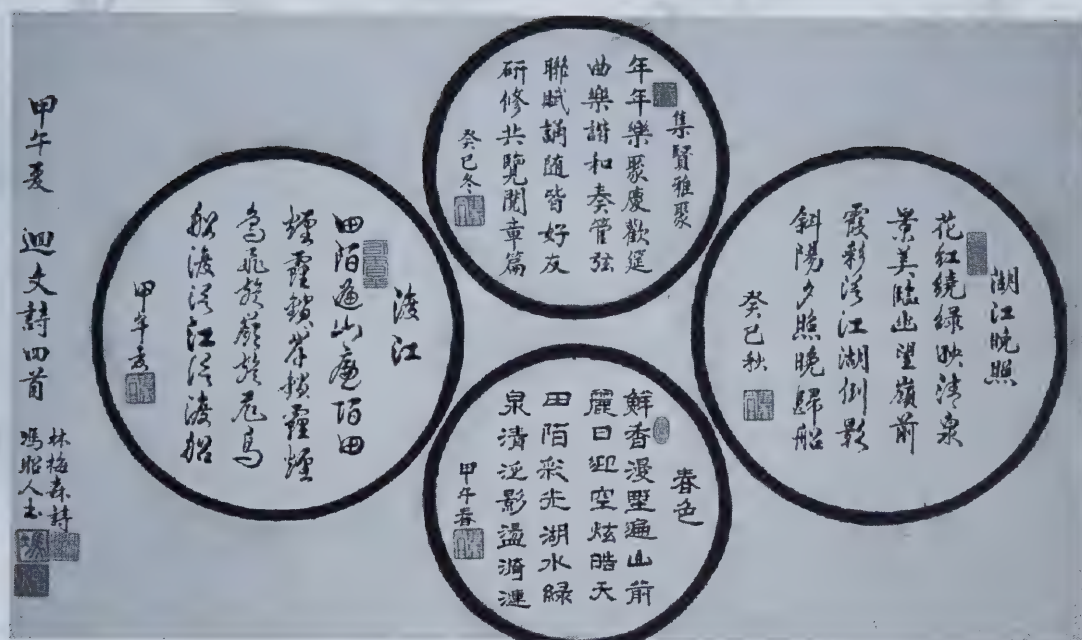 湖江晚照
花紅繞綠映清泉
景美臨幽望嶺前
霞彩落江湖倒影
斜陽夕照晚歸船
癸巳秋
集賢雅聚
年年樂聚慶歡筵
曲樂諧和奏管弦
聯賦誦隨皆好友
研修共覽閱章篇
癸巳冬
春色
鮮香漫墅遍山前
麗日迎空炫皓天
田陌彩光湖水綠
泉清泛影盪漪漣
甲午春
渡江
田陌遍山遍陌田
煙霾鎖岸鎖霾煙
鳥飛旋嶺旋飛鳥
船渡江渡船
甲午夏
甲午夏 迴文詩四首
林梅森詩
馮昭人書